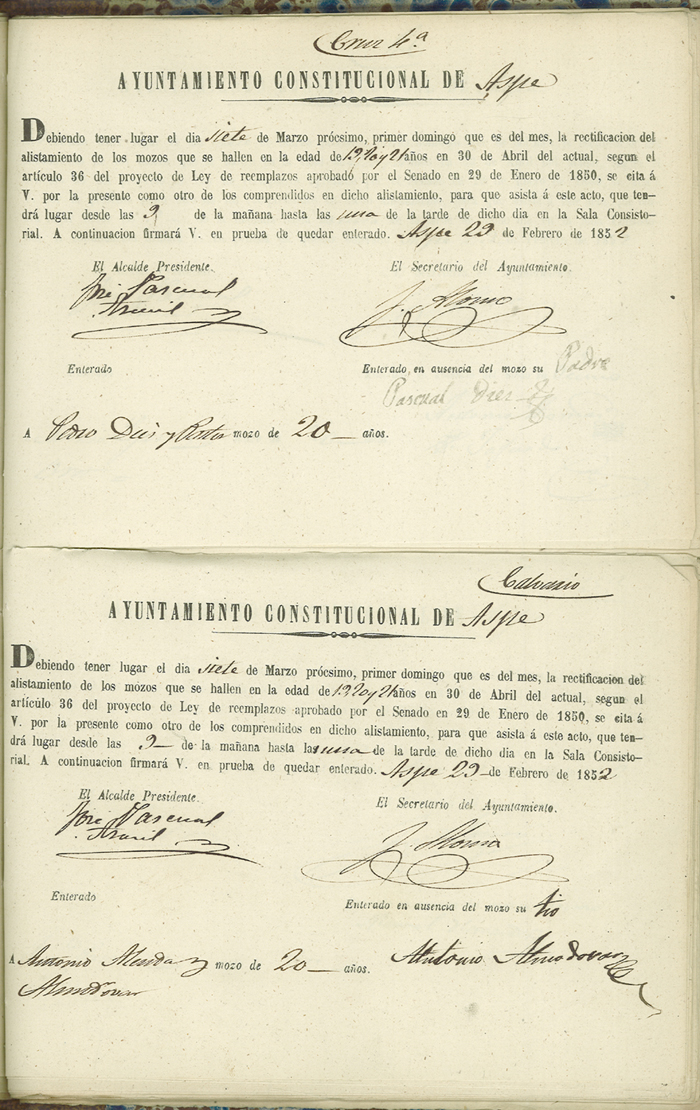 Cruz 4ª
AYUNTAMIENTO CONSTITUCIONAL DE Aspe
Debiendo tener lugar el dia siete de Marzo prócsimo, primer domingo que es del mes, la rectificacion del
alistamiento de los mozos que se hallen en la edad de 19, 20 y 21 años en 30 de Abril del actual, segun el
artículo 36 del proyecto de Ley de reemplazos aprobado por el Senado en 29 de Enero de 1850, se cita á
V. por la presente como otro de los comprendidos en dicho alistamiento, para que asista á este acto, que ten-
drá lugar desde las 9 de la mañana hasta las una de la tarde de dicho dia en la Sala Consisto-
rial. A continuacion firmará V. en prueba de quedar enterado. Aspe 29 de Febrero de 1852
El Alcalde Presidente. El Secretario del Ayuntamiento.
José Pascual J. Alonso
Enterado Enterado, en ausencia del mozo su Padre
Pascual Diez
A Pedro y mozo de 20 años.
Calvario
AYUNTAMIENTO CONSTITUCIONAL DE Aspe
Debiendo tener lugar el dia siete de Marzo prócsimo, primer domingo que es del mes, la rectificacion del
alistamiento de los mozos que se hallen en la edad de 19, 20 y 21 años en 30 de Abril del actual, segun el
artículo 36 del proyecto de Ley de reemplazos aprobado por el Senado en 29 de Enero de 1850, se cita á
V. por la presente como otro de los comprendidos en dicho alistamiento, para que asista á este acto, que ten-
drá lugar desde las 9 de la mañana hasta las una de la tarde de dicho dia en la Sala Consisto-
rial. A continuacion firmará V. en prueba de quedar enterado. Aspe 29 de Febrero de 1852
El Alcalde Presidente. El Secretario del Ayuntamiento.
José Pascual J. Alonso
Enterado Enterado en ausencia del mozo su tio
A Antonio mozo de 20 años. Antonio Almodovar
Almodovar